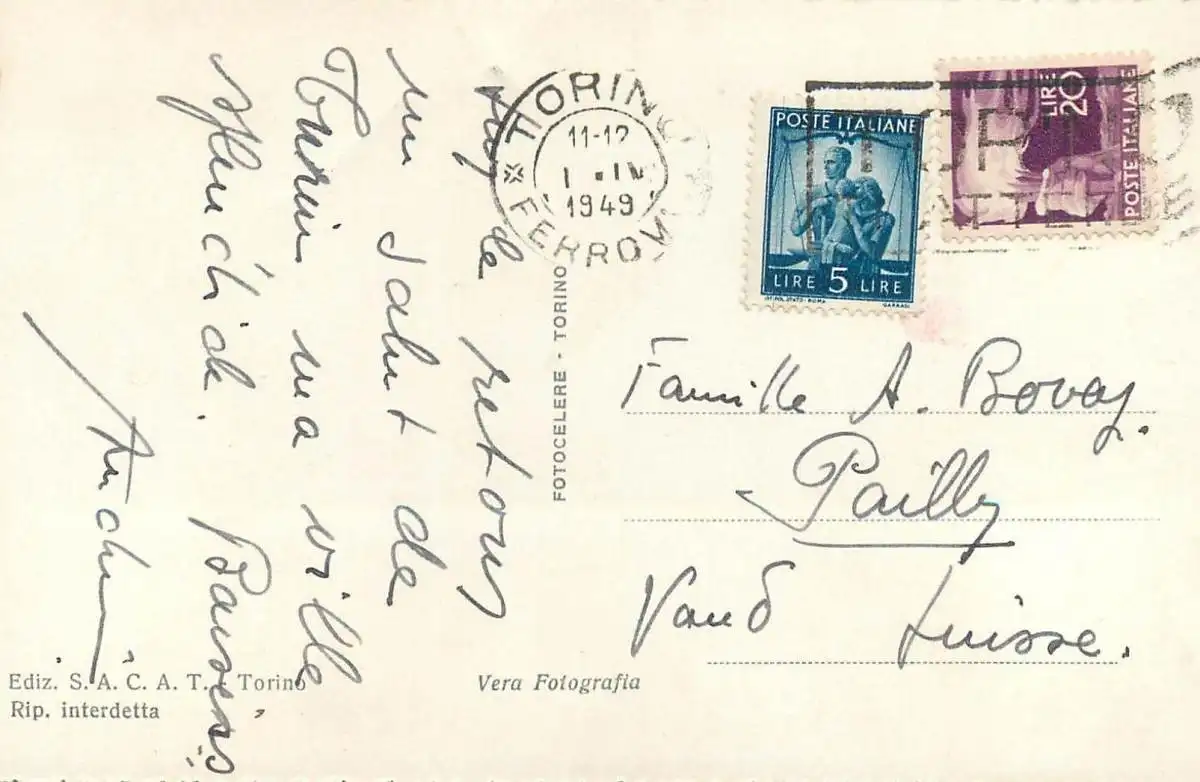 retour
un salut de
Turin ma ville
Baisers
TORINO
11-12
1 • IV
1949
FERROVIA
POSTE ITALIANE
LIRE 5 LIRE
LIRE 20
POSTE ITALIANE
TORINO
FOTOCELERE - TORINO
Famille A. Bovay.
Pailly
Vaud Suisse.
Ediz. S. A. C. A. T. - Torino
Rip. interdetta
Vera Fotografia